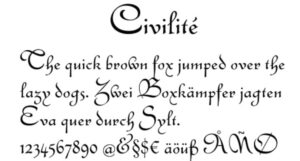 Civilité
The quick brown fox jumped over the
lazy dogs. Zwei Boxkämpfer jagten
Eva quer durch Sylt.
1234567890 @&$§€ äöüß ÅÑØ